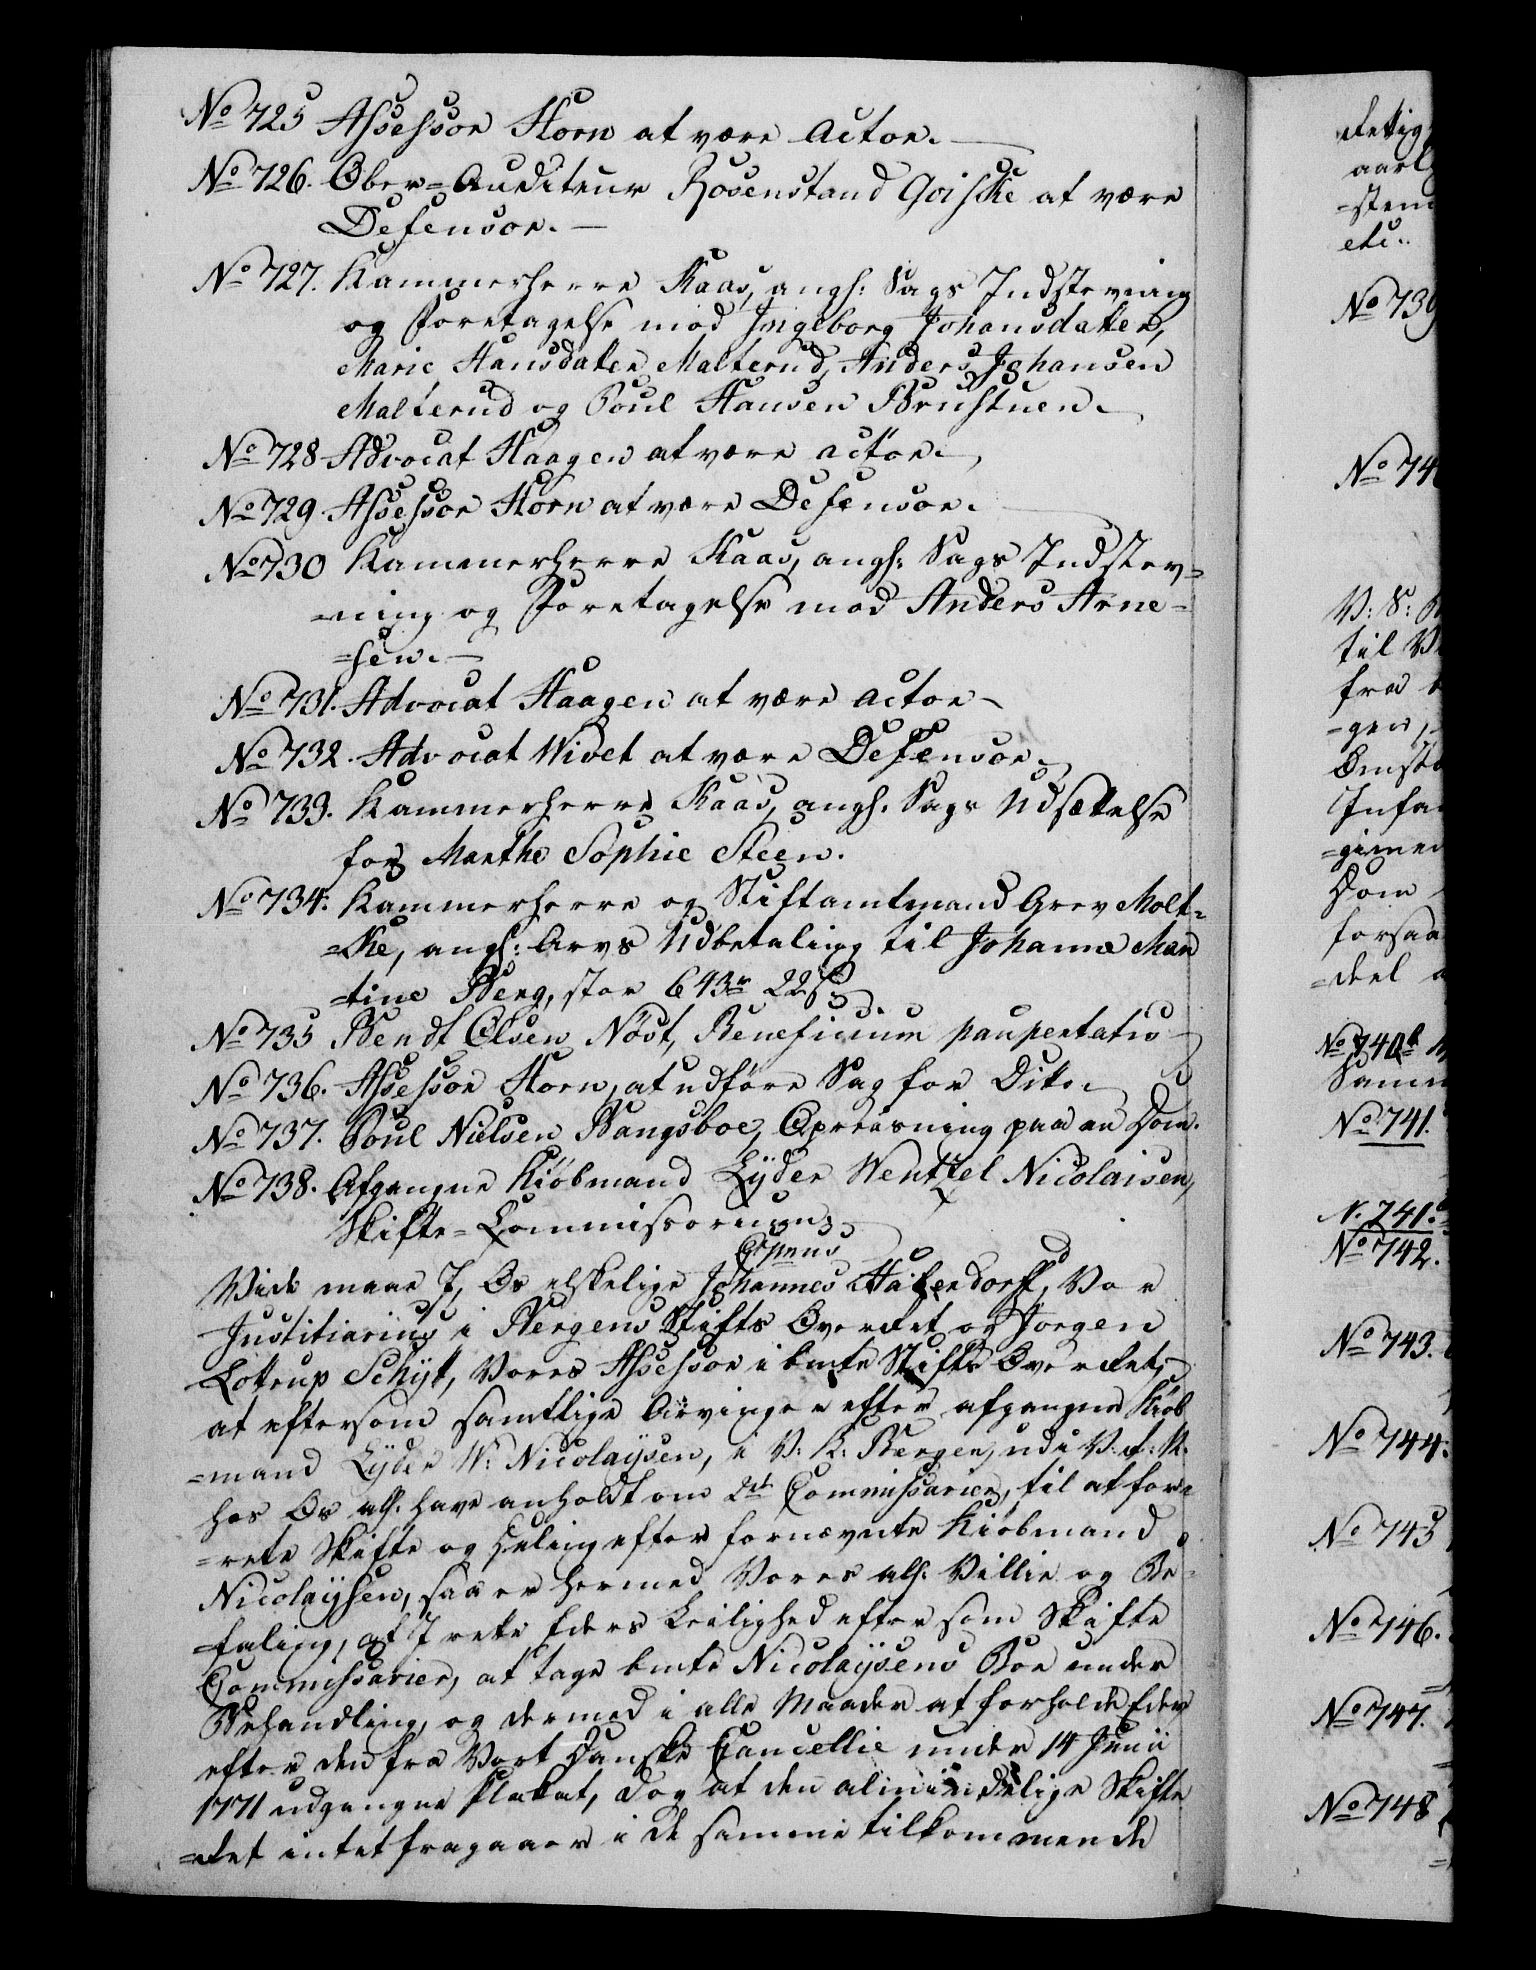 No 725 Assessor Horn at være Actor.
No 726. Ober=Auditeur Rosenstand Goiske at være
Defensor.
No 727. Kammerherre Kaas, angl: Sags Indstevning
og Foretagelse mod Ingeborg Johansdatter,
Marie Hansdatter Malterud, Anders Johansen
Malterud og Poul Hansen Brustuen.
No 728 Advocat Haagen at være actor.
No 729. Assessor Horn at være Defensor.
No 730 Kammerherre Kaas, angl: Sags Indstev=
=ning og Foretagelse mod Anders Arne=
=sen.
No 731. Advocat Haagen at være Actor
No 732. Advocat Wivet at være Defensor.
No 733. Kammerherre Kaas, angl. Sags Udsættelse
for Marthe Sophie Steen.
No 734. Kammerherre og Stiftamtmand Grev Molt=
=ke, angl: Arvs Udbetaling til Johanna Mar
=tine Berg, stor 643 r 22 s.
No 735 Bendt Olsen Nöst, Beneficium paupertatis
No 736. Assessor Horn, at udføre Sag for Dito.
No 737. Poul Nielsen Bangsboe, Opreisning paa en Dom.
No 738. Afgangne Kiöbmand Lyder Wenttel Nicolaisen,
Skifte=Commissorium.
Espens
Vide maae I, Os elskelige Johannes Hafendorff, Vor
Justitiarius i Bergens Stifts Overret og Jörgen
Lottrup Schydt, Vores Assessor i bmte Stifts Overret,
at eftersom samtlige Arvinger efter afgangne Kiöb
=mand Lyder W: Nicolaysen, i V: K: Bergen, udi V: R: N:
hos Os all. have anholdt om 2de Commissarier, til at for=
=rette Skifte og Deling efter fornævnte Kiöbmand
Nicolaysen, saa er hermed Vores all. Villie og Be=
=faling, at I rette Eders Leilighed efter som Skifte
Commissarier, at tage bmte Nicolaysens Boe under
Behandling, og dermed i alle Maader at forholde Eder
efter den fra Vort Danske Cancellie under 14 Junii
1771 udgangne Plakat, dog at den almindelige Skifte
=Ret intet fragaaer i de samme tilkommende
retig
aarl
=sten
etc..
No 739
No 740
V: S:
til
fra
=gen,
Omst
Infa
=gimen
Dom
forsaa
=deel
No 740b
Samm
No 741.
N. 741.
No 742.
No 743.
No 744.
No 745
No 746.
No 747.
No 748